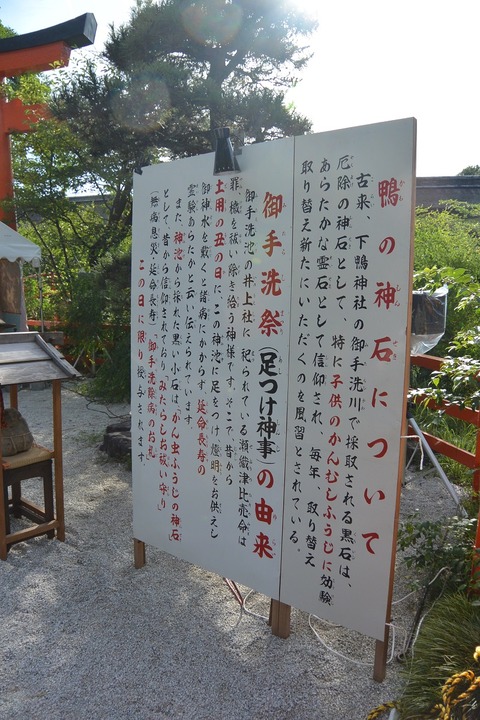 鴨の神石について
古来、下鴨神社の御手洗川で採取される黒石は、
厄除の神石として、特に子供のかんむしふうじに効験
あらたかな霊石として信仰され、毎年、取り替え
取り替え新たにいただくのを風習とされている。
御手洗祭(足つけ神事)の由来
御手洗池の井上社に祀られている瀬織津比売命は
罪、穢を祓い除き給う神様です。そこで昔から
土用の丑の日に、この神池に足をつけ燈明をお供えし
御神水を戴くと諸病にかからず、延命長寿の
霊験あらたかと云い伝えられています。
また、神池から採れた黒い小石は「かん虫ふうじの神石」
として昔から信仰されており「みたらしお祓い守り」
(無病息災・延命長寿)「御手洗除病のお札」
この日に限り授与されます。